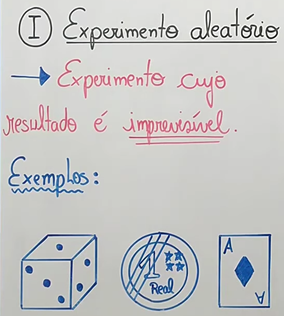 I Experimento aleatório
→ Experimento cujo
resultado é imprevisível.
Exemplos:
1
Real
A
A